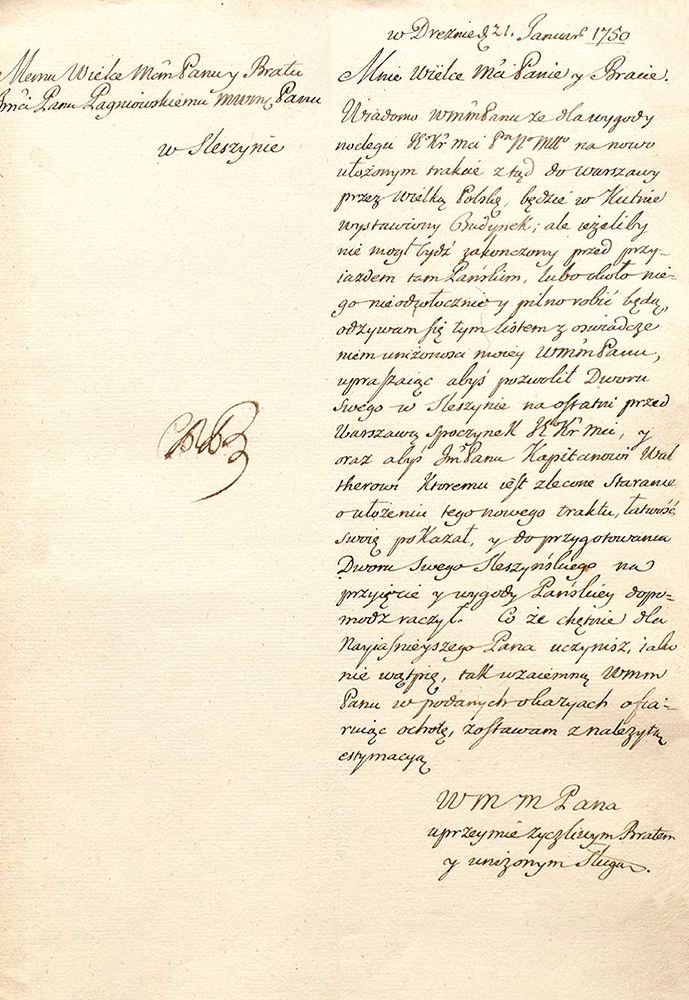 w Dreznie d. 21. Januar. 1750
Memu Wielce Mćm Panu y Bratu
Jmći Panu Łagniowskiemu mwmq Panu
w Sleszynie
Mnie Wielce Mći Panie y Bracie.
Wiadomo wmm Panu ze dla wygody
noclegu KKr mci Pa No Mgo na nowo
ułożonym trakcie z tąd do warszawy
przez Wielką Polskę, będzie w Kutnie
wystawiony Budynek; ale ieżeliby
nie mogł bydź zakonczony przed przy-
iazdem tam Pańskim, lubo około nie-
go nieodwłocznie y pilno robić będą,
odzywam się tym listem z oswiadcze
niem uniżonosci moiey wmm Panu,
upraszaiąc abyś pozwolił Dworu
Swego w Sleszynie na ostatni przed
Warszawą spoczynek KKr mci, y
oraz abyś Jmć Panu Kapitanowi Wal
therowi Ktoremu iest zlecone staranie
o ułożeniu tego nowego traktu, łatwość
swoię pokazał, y do przygotowania
Dworu Swego Sleszyńskiego na
przyięcie y wygody Pańskiey dopo-
modz raczył. Co że chętnie dla
Nayiasnieyszego Pana uczynisz, iako
nie wątpię, tak wzaiemną Wmm
Panu w podanych okazyach ofia-
ruiąc ochotę, zostawam z należytą
estymacyą
W M M Pana
uprzeymie zyczliwym Bratem
y uniżonym Sługą.